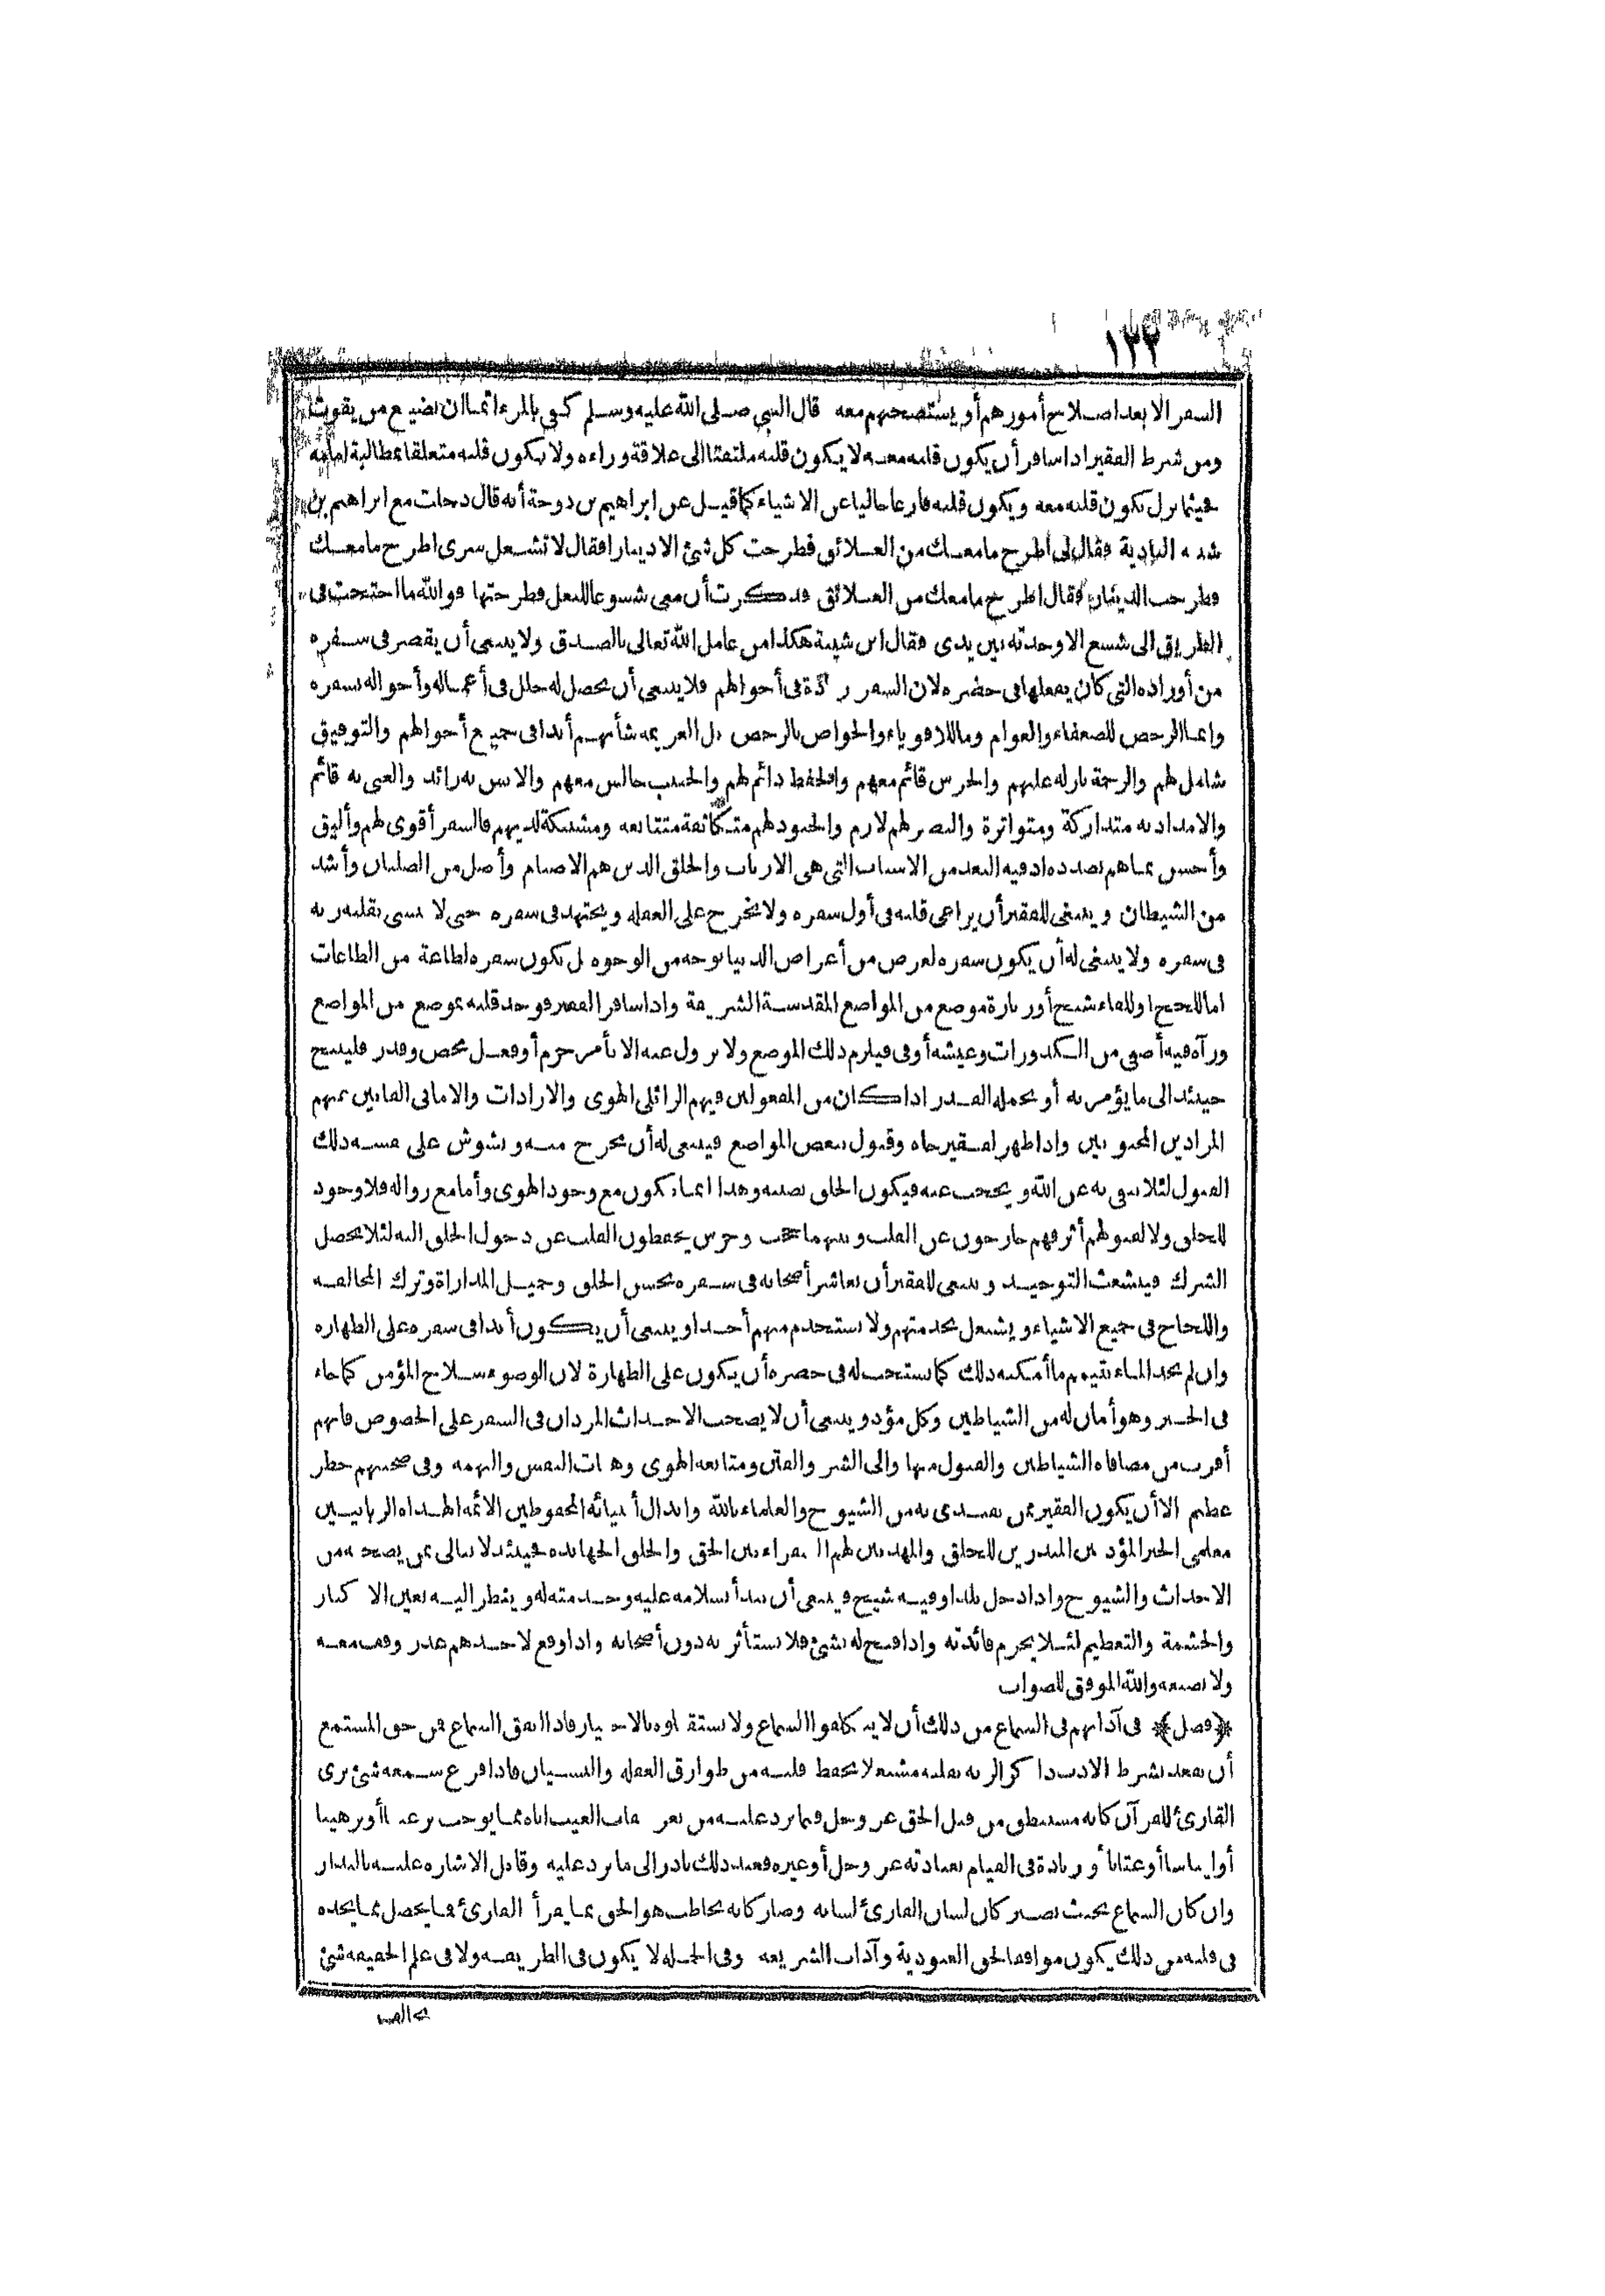 ١٢٢
السفر الا بعد اصلاح أمورهم أو يستصحبهم معه قال النبي صلى الله عليه وسلم كفى بالمرء اثما ان يضيع من يقوت
ومن شرط الفقير اذا سافر أن يكون قلبه معه لا يكون قلبه ملتفتا الى علاقة وراءه ولا يكون قلبه متعلقا بمطالبة امامه
فحيثما نزل يكون قلبه معه ويكون قلبه فارغا خاليا عن الاشياء كما قيل عن ابراهيم بن دوحة أنه قال دخلت مع ابراهيم بن
شيبة البادية فقال لى اطرح ما معك من العلائق فطرحت كل شئ الا دينارا فقال لا تشغل سرى اطرح ما معك
فطرحت الدينار فقال اطرح ما معك من العلائق فذكرت أن معى شسوعا للنعل فطرحتها فوالله ما احتجت فى
الطريق الى شسع الا وجدته بين يدى فقال ابن شيبة هكذا من عامل الله تعالى بالصدق ولا ينبغى أن يقصر فى سفره
من أوراده التى كان يفعلها فى حضره لان السفر زيادة فى أحوالهم فلا ينبغى أن يحصل له خلل فى أعماله وأحواله بسفره
وانما الرخص للضعفاء والعوام وما للاقوياء والخواص بالرخص بل العزيمة شأنهم أبدا فى جميع أحوالهم والتوفيق
شامل لهم والرحمة نازلة عليهم والحرس قائم معهم والحفظ دائم لهم والحبيب جالس معهم والانس به زائد والغنى به قائم
والامداد به متداركة ومتواترة والنصر لهم لازم والجنود لهم متكاثفة متتابعة ومشتبكة لديهم فالسفر أقوى لهم وأليق
وأحسن بما هم بصدده اذ فيه البعد من الاسباب التى هى الارباب والخلق الذين هم الاصنام وأضل من الصلبان وأشد
من الشيطان وينبغى للفقير أن يراعى قلبه فى أول سفره ولا يخرج على الغفلة ويجتهد فى سفره حتى لا ينسى بقلبه ربه
فى سفره ولا ينبغى له أن يكون سفره لغرض من أعراض الدنيا بوجه من الوجوه بل يكون سفره لطاعة من الطاعات
اما للحج أو للقاء شيخ أو زيارة موضع من المواضع المقدسة الشريفة واذا سافر الفقير فوجد قلبه بموضع من المواضع
ورآه فيه أصفى من الكدورات وعيشه أوفى فيلزم ذلك الموضع ولا يزول عنه الا بأمر جزم أو فعل محض وقدر فليسح
حينئذ الى ما يؤمر به أو يحمله القدر اذا كان من المفعولين فيهم الزائلى الهوى والارادات والامانى الفانين عنهم
المرادين المحبوبين واذا ظهر لفقير جاه وقبول ببعض المواضع فينبغى له أن يخرج منه ويشوش على نفسه ذلك
القبول لئلا يبتلى به عن الله ويحجب عنه فيكون الخلق نصيبه وهذا انما يكون مع وجود الهوى وأما مع زواله فلا وجود
للخلق ولا لقبولهم أثر فهم خارجون عن القلب وبينهما حجب وحرس يحفظون القلب عن دخول الخلق اليه لئلا يحصل
الشرك فيتشعث التوحيد وينبغى للفقير أن يعاشر أصحابه فى سفره بحسن الخلق وجميل المداراة وترك المخالفة
واللجاج فى جميع الاشياء ويشتغل بخدمتهم ولا يستخدم منهم أحدا وينبغى أن يكون أبدا فى سفره على الطهارة
وان لم يجد الماء تيمم ما أمكنه ذلك كما يستحب له فى حضره أن يكون على الطهارة لان الوضوء سلاح المؤمن كما جاء
فى الخبر وهو أمان له من الشياطين وكل مؤذ وينبغى أن لا يصحب الاحداث المردان فى السفر على الخصوص فانهم
أقرب من مصافاة الشياطين والقبول منها والى الشر والفتن ومتابعة الهوى وهنات النفس والتهمة وفى صحبتهم خطر
عظيم الا أن يكون الفقير ممن يقتدى به من الشيوخ والعلماء بالله وابدال أنبيائه المحفوظين الائمة الهداة الربانيين
معلمى الخير المؤدبين المنذرين للخلق والمهذبين لهم السفراء بين الحق والخلق الجهابذة فحينئذ لا يبالى بمن يصحبه من
الاحداث والشيوخ واذا دخل بلدا وفيه شيخ فينبغى أن يبدأ بسلامه عليه وخدمته له وينظر اليه بعين الاكبار
والحشمة والتعظيم لئلا يحرم فائدته واذا فتح له بشئ فلا يستأثر به دون أصحابه واذا وقع لاحدهم عذر وقف معه
ولا يضيعه والله الموفق للصواب
﴿فصل﴾ فى آدابهم فى السماع من ذلك أن لا يتكلفوا السماع ولا يستقبلوه بالاختيار فاذا اتفق السماع فمن حق المستمع
أن يقعد بشرط الادب ذاكرا لربه بقلبه مشتغلا بحفظ قلبه من طوارق الغفلة والنسيان فاذا قرع سمعه شئ يرى
القارئ للقرآن كأنه مستنطق من قبل الحق عز وجل فيما يرد عليه من تعريفات الغيب اياه مما يوجب ترغيبا أو ترهيبا
أو ايناسا أو عتابا أو زيادة فى القيام بعبادته عز وجل أو غيره فعند ذلك بادر الى ما يرد عليه وقابل الاشارة عليه بالبدار
وان كان السماع بحيث يصير كأن لسان القارئ لسانه وصار كأنه يخاطب هو الحق بما يقرأ القارئ فما يحصل مما يجده
فى قلبه من ذلك يكون موافقا لحق العبودية وآداب الشريعة وفى الجملة لا يكون فى الطريقة ولا فى علم الحقيقة شئ